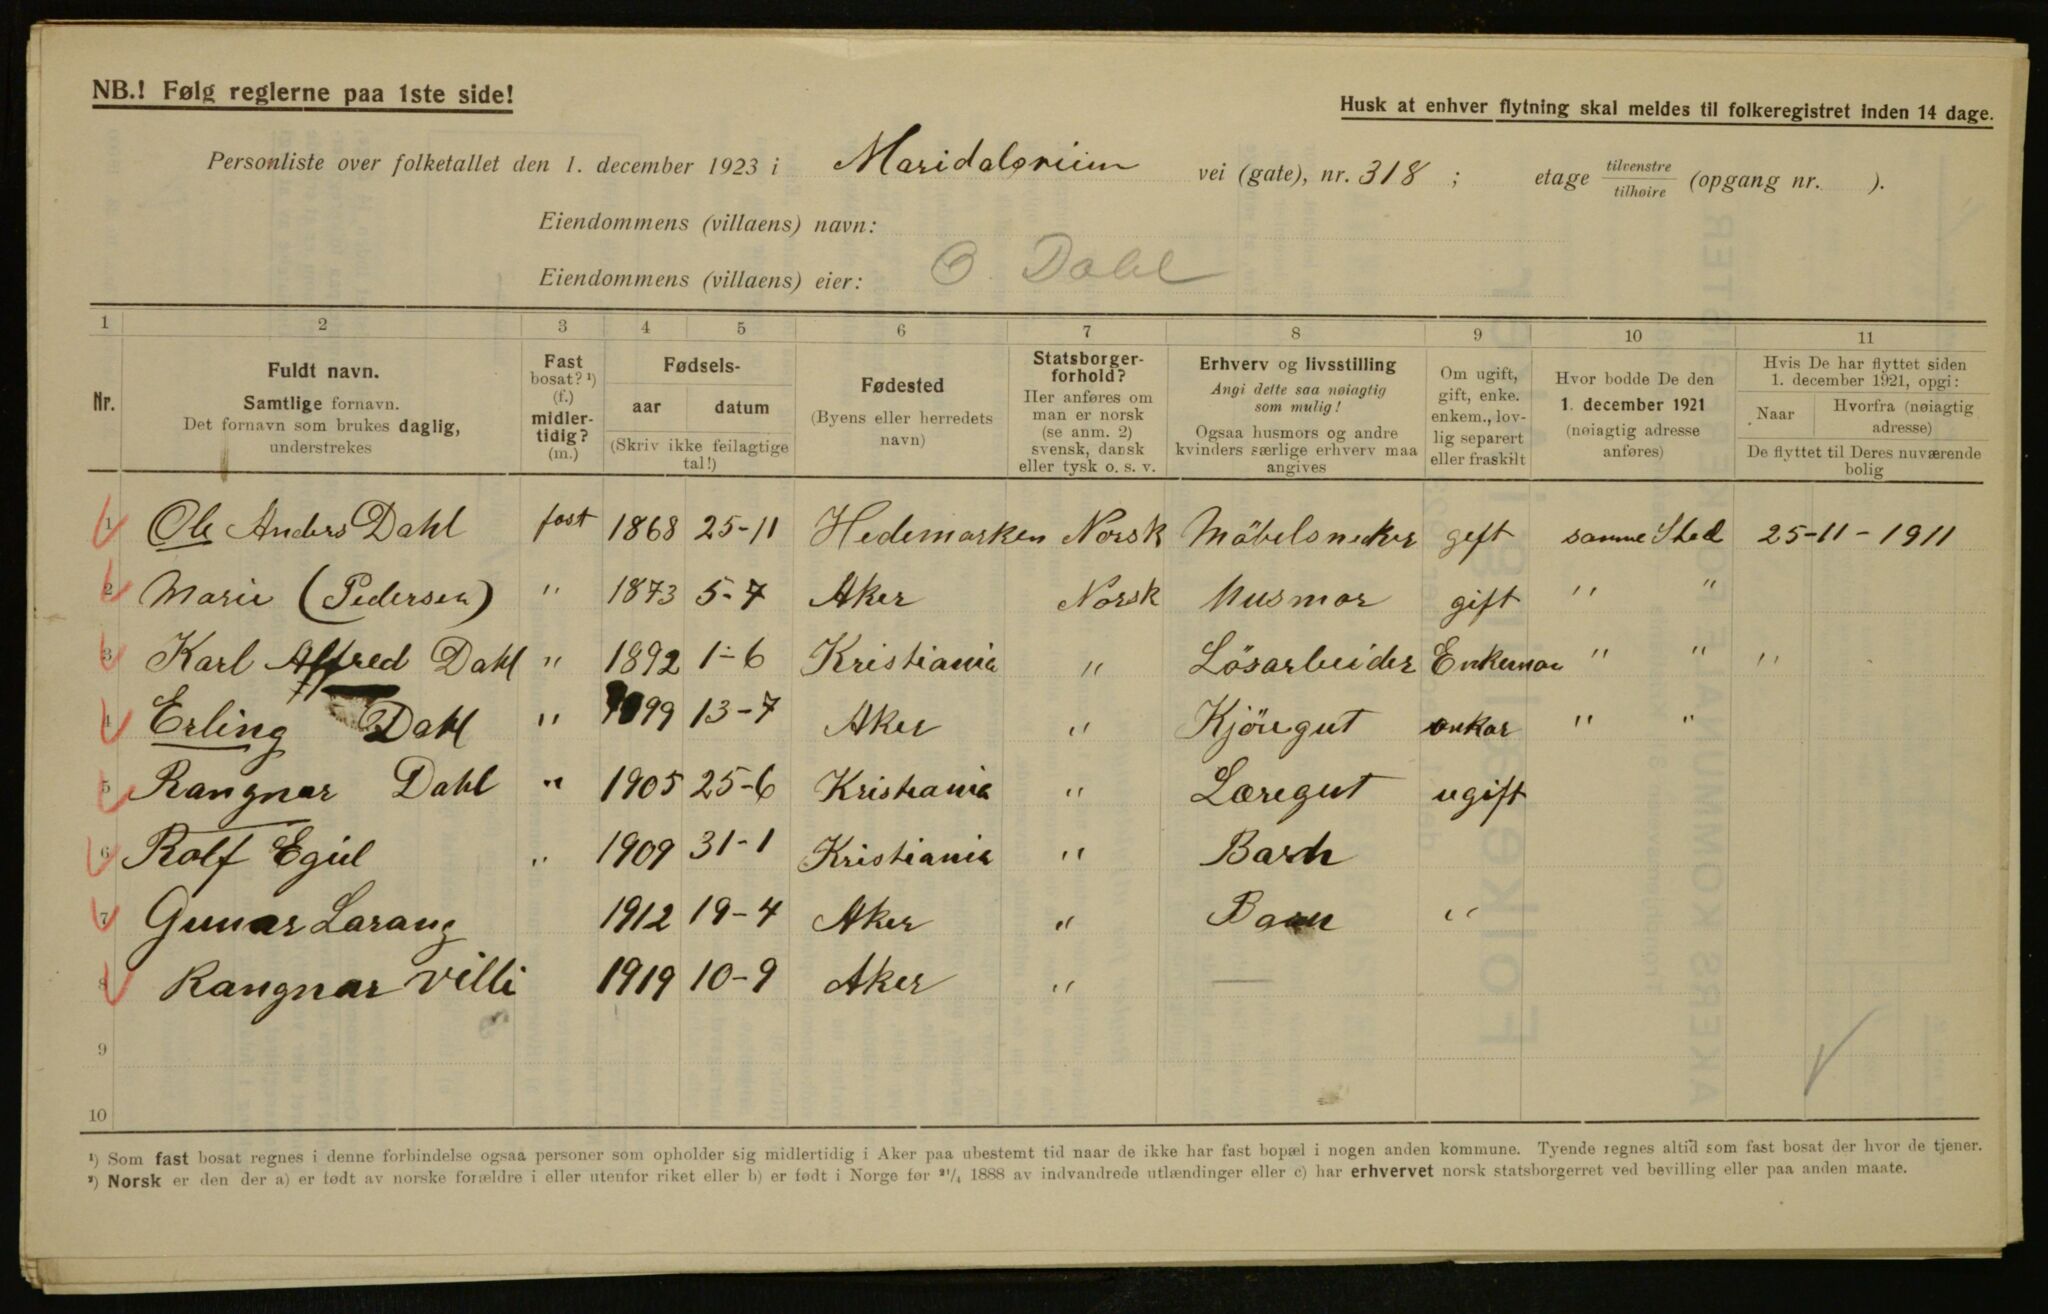 NB.! Følg reglerne paa 1ste side!
Husk at enhver flytning skal meldes til folkeregistret inden 14 dage.
Personliste over folketallet den 1. december 1923 i Maridalsveien vei (gate), nr. 318 ; etage tilvenstre/tilhøire (opgang nr. ).
Eiendommens (villaens) navn:
Eiendommens (villaens) eier: O. Dahl
1 2 3 4 5 6 7 8 9 10 11
Nr.
Fuldt navn.
Samtlige fornavn.
Det fornavn som brukes daglig,
understrekes
Fast
bosat? ¹)
(f.)
midler-
tidig?
(m.)
Fødsels-
aar datum
(Skriv ikke feilagtige
tal!)
Fødested
(Byens eller herredets
navn)
Statsborger-
forhold?
Her anføres om
man er norsk
(se anm. 2)
svensk, dansk
eller tysk o. s. v.
Erhverv og livsstilling
Angi dette saa nøiagtig
som mulig!
Ogsaa husmors og andre
kvinders særlige erhverv maa
angives
Om ugift,
gift, enke.
enkem., lov-
lig separert
eller fraskilt
Hvor bodde De den
1. december 1921
(nøiagtig adresse
anføres)
Hvis De har flyttet siden
1. december 1921, opgi:
Naar Hvorfra (nøiagtig
adresse)
De flyttet til Deres nuværende
bolig
1 Ole Anders Dahl fast 1868 25-11 Hedemarken Norsk Möbelsnecker geft samme Sted 25-11-1911
2 Marie (Pedersen) " 1873 5-7 Aker Norsk Husmor gift " "
3 Karl Alfred Dahl " 1892 1-6 Kristiania " Lösarbeider Enkeman " " "
4 Erling Dahl " 1899 13-7 Aker " Kjöregut " "
5 Rangnar Dahl " 1905 25-6 Kristiania " Læregut ugift
6 Rolf Egiel " 1909 31-1 Kristiania " Barn
7 Gunar Larang 1912 19-4 Aker " Barn "
8 Rangnar Villi 1919 10-9 Aker " —
9
10
¹) Som fast bosat regnes i denne forbindelse ogsaa personer som opholder sig midlertidig i Aker paa ubestemt tid naar de ikke har fast bopæl i nogen anden kommune. Tyende regnes altid som fast bosat der hvor de tjener.
²) Norsk er den der a) er født av norske forældre i eller utenfor riket eller b) er født i Norge før ²¹/₄ 1888 av indvandrede utlændinger eller c) har erhvervet norsk statsborgerret ved bevilling eller paa anden maate.